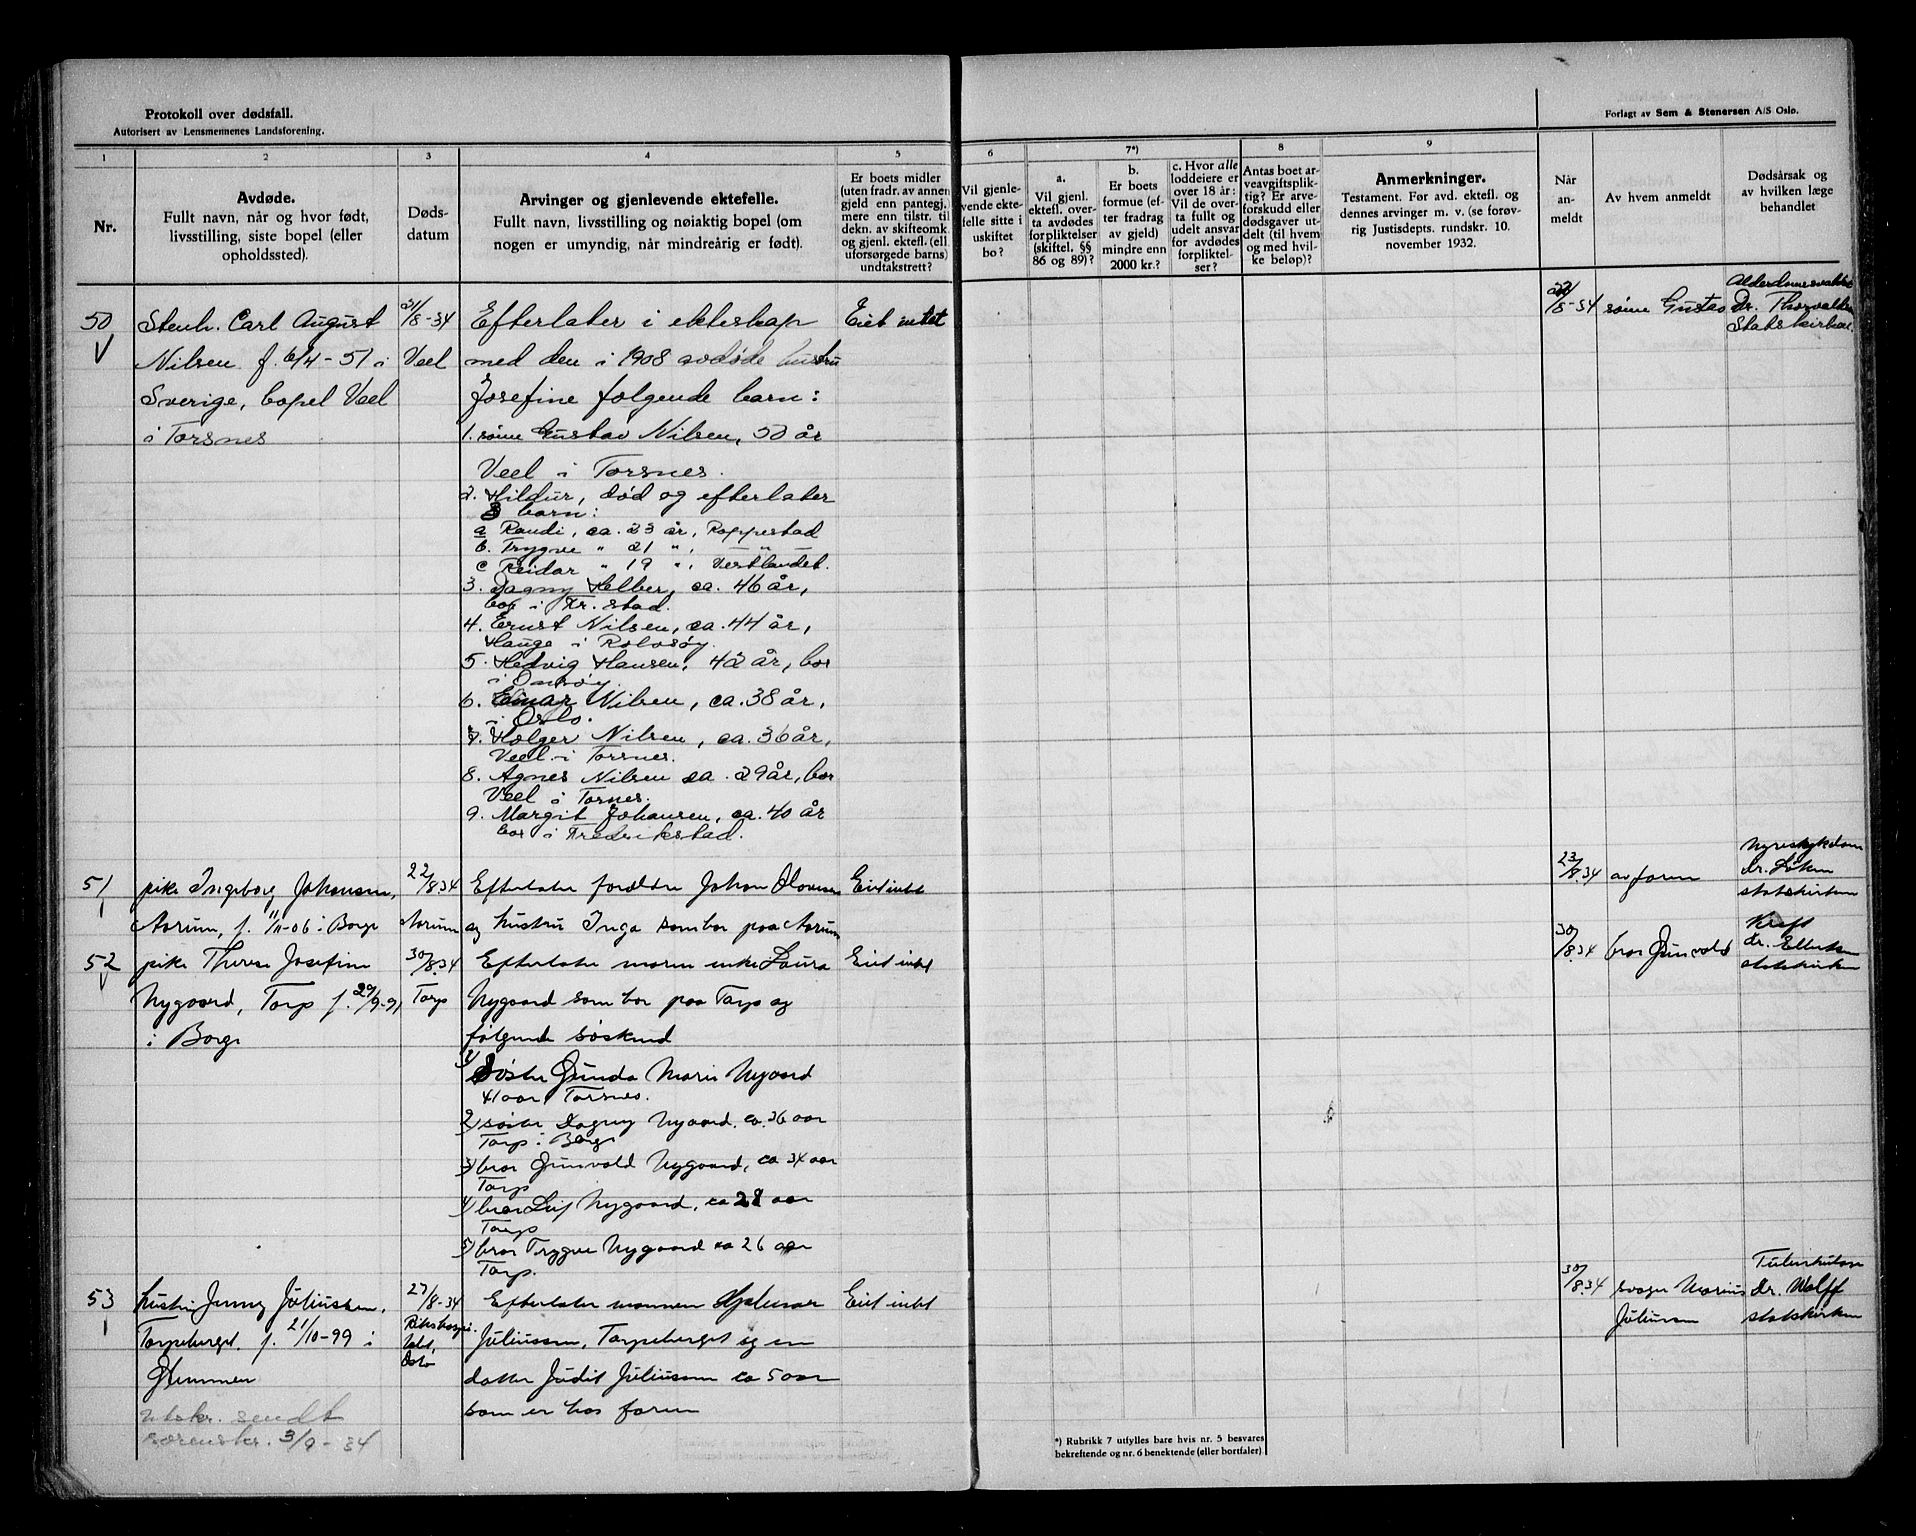 Protokoll over dødsfall.
Autorisert av Lensmennenes Landsforening.
Forlagt av Sem & Stenersen A/S Oslo.
1 2 3 4 5 6 7*) 8 9
Nr.
Avdøde.
Fullt navn, når og hvor født,
livsstilling, siste bopel (eller
opholdssted).
Døds-
datum
Arvinger og gjenlevende ektefelle.
Fullt navn, livsstilling og nøiaktig bopel (om
nogen er umyndig, når mindreårig er født).
Er boets midler
(uten fradr. av annen
gjeld enn pantegj.)
mere enn tilstr. til
dekn. av skifteomk.
og gjenl. ektefl. (ell.
uforsørgede barns)
undtakstrett?
Vil gjenle-
vende ekte-
felle sitte i
uskiftet
bo?
a.
Vil gjenl.
ektefl. over-
ta avdødes
forpliktelser
(skiftel. §§
86 og 89)?
b.
Er boets
formue (ef-
ter fradrag
av gjeld)
mindre enn
2000 kr.?
c. Hvor alle
loddeiere er
over 18 år:
Vil de over-
ta fullt og
udelt ansvar
for avdødes
forpliktel-
ser?
Antas boet ar-
veavgiftsplik-
tig? Er arve-
forskudd eller
dødsgaver ut-
delt (til hvem
og med hvil-
ke beløp)?
Anmerkninger.
Testament. Før avd. ektefl. og
dennes arvinger m. v. (se forøv-
rig Justisdepts. rundskr. 10.
november 1932.
Når
an-
meldt
Av hvem anmeldt
Dødsårsak og
av hvilken læge
behandlet
50
Stenh. Carl August
Nilsen f. 6/4-51 i
Sverige, bopel Veel
i Torsnes
21/8-34
Veel
Efterlater i ekteskap
med den i 1908 avdøde hustru
Josefine følgende barn:
1. sønn Gustav Nilsen, 50 år
Veel i Torsnes.
2. Hildur, død og efterlater
3 barn:
a Randi, ca. 23 år, Roppestad
b. Trygve " 21 ", — " —
c Reidar " 19 ", Vestlandet.
3. Dagny Helber, ca. 46 år,
bor i Fr.stad.
4. Ernst Nilsen, ca. 44 år,
Hauge i Rolvsøy.
5. Hedvig Hansen, 42 år, bor
i Onsøy.
6. Einar Nilsen, ca. 38 år,
i Oslo.
7. Holger Nilsen, ca. 36 år,
Veel i Torsnes.
8. Agnes Nilsen ca. 29 år, bor
Veel i Torsnes.
9. Margit Johansen, ca. 40 år
bor i Fredrikstad.
Eiet intet
/8-34
sønn Gustav
Alderdomssvakhet
Dr. Thorvaldsen
Statskirken
51
pike Ingeborg Johansen,
Aarum, f. 11/11-06 i Borge
22/8.34
Aarum
Efterlater foreldre Johan Olavesen
og hustru Inga som bor paa Aarum
Eiet intet
23/8.34
av faren
Nyresykdom
dr. Løken
statskirken
52
pike Therese Josefine
Nygaard, Torp f. 29/9-91
i Borge
30/8.34
Torp
Efterlater moren enke Laura
Nygaard som bor paa Torp og
følgende søskend
1) Søster Gunda Marie Nygaard
41 aar, Torsnes.
2) søster Dagny Nygaard. ca. 36 aar
Torp i Borge
3) bror Gunvald Nygaard, ca 34 aar
Torp
4) bror Leif Nygaard, ca 28 aar
Torp
5) bror Trygve Nygaard ca 26 aar
Torp.
Eiet intet
30/8.34
bror Gunvald
Kreft
dr. Ellertsen
statskirken
53
hustru Jenny Juliussen,
Torpeberget. f. 21/10-99 i
Glemmen
Utskr. sendt
sorenskr. 3/9-34
27/8-34
Rikshospi-
talet,
Oslo
Efterlater mannen Hjalmar
Juliussen, Torpeberget og en
datter Judit Juliussen ca 5 aar
som er hos faren
Eiet intet
30/8.34
svoger Marius
Juliussen
Tuberkulose
Dr. Wolff
statskirken
*) Rubrikk 7 utfylles bare hvis nr. 5 besvares
bekreftende og nr. 6 benektende (eller bortfaler)